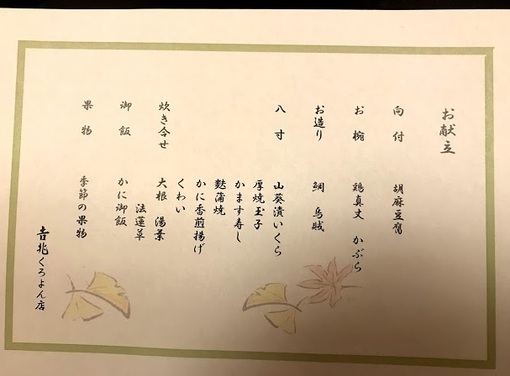 お献立
向付 胡麻豆腐
お椀 鶉真丈 かぶら
お造り 鯛 烏賊
八寸 山葵漬いくら
厚焼玉子
かます寿し
麩蒲焼
かに香煎揚げ
くわい
炊き合せ 大根 湯葉
法蓮草
御飯 かに御飯
果物 季節の果物
吉兆くろよん店